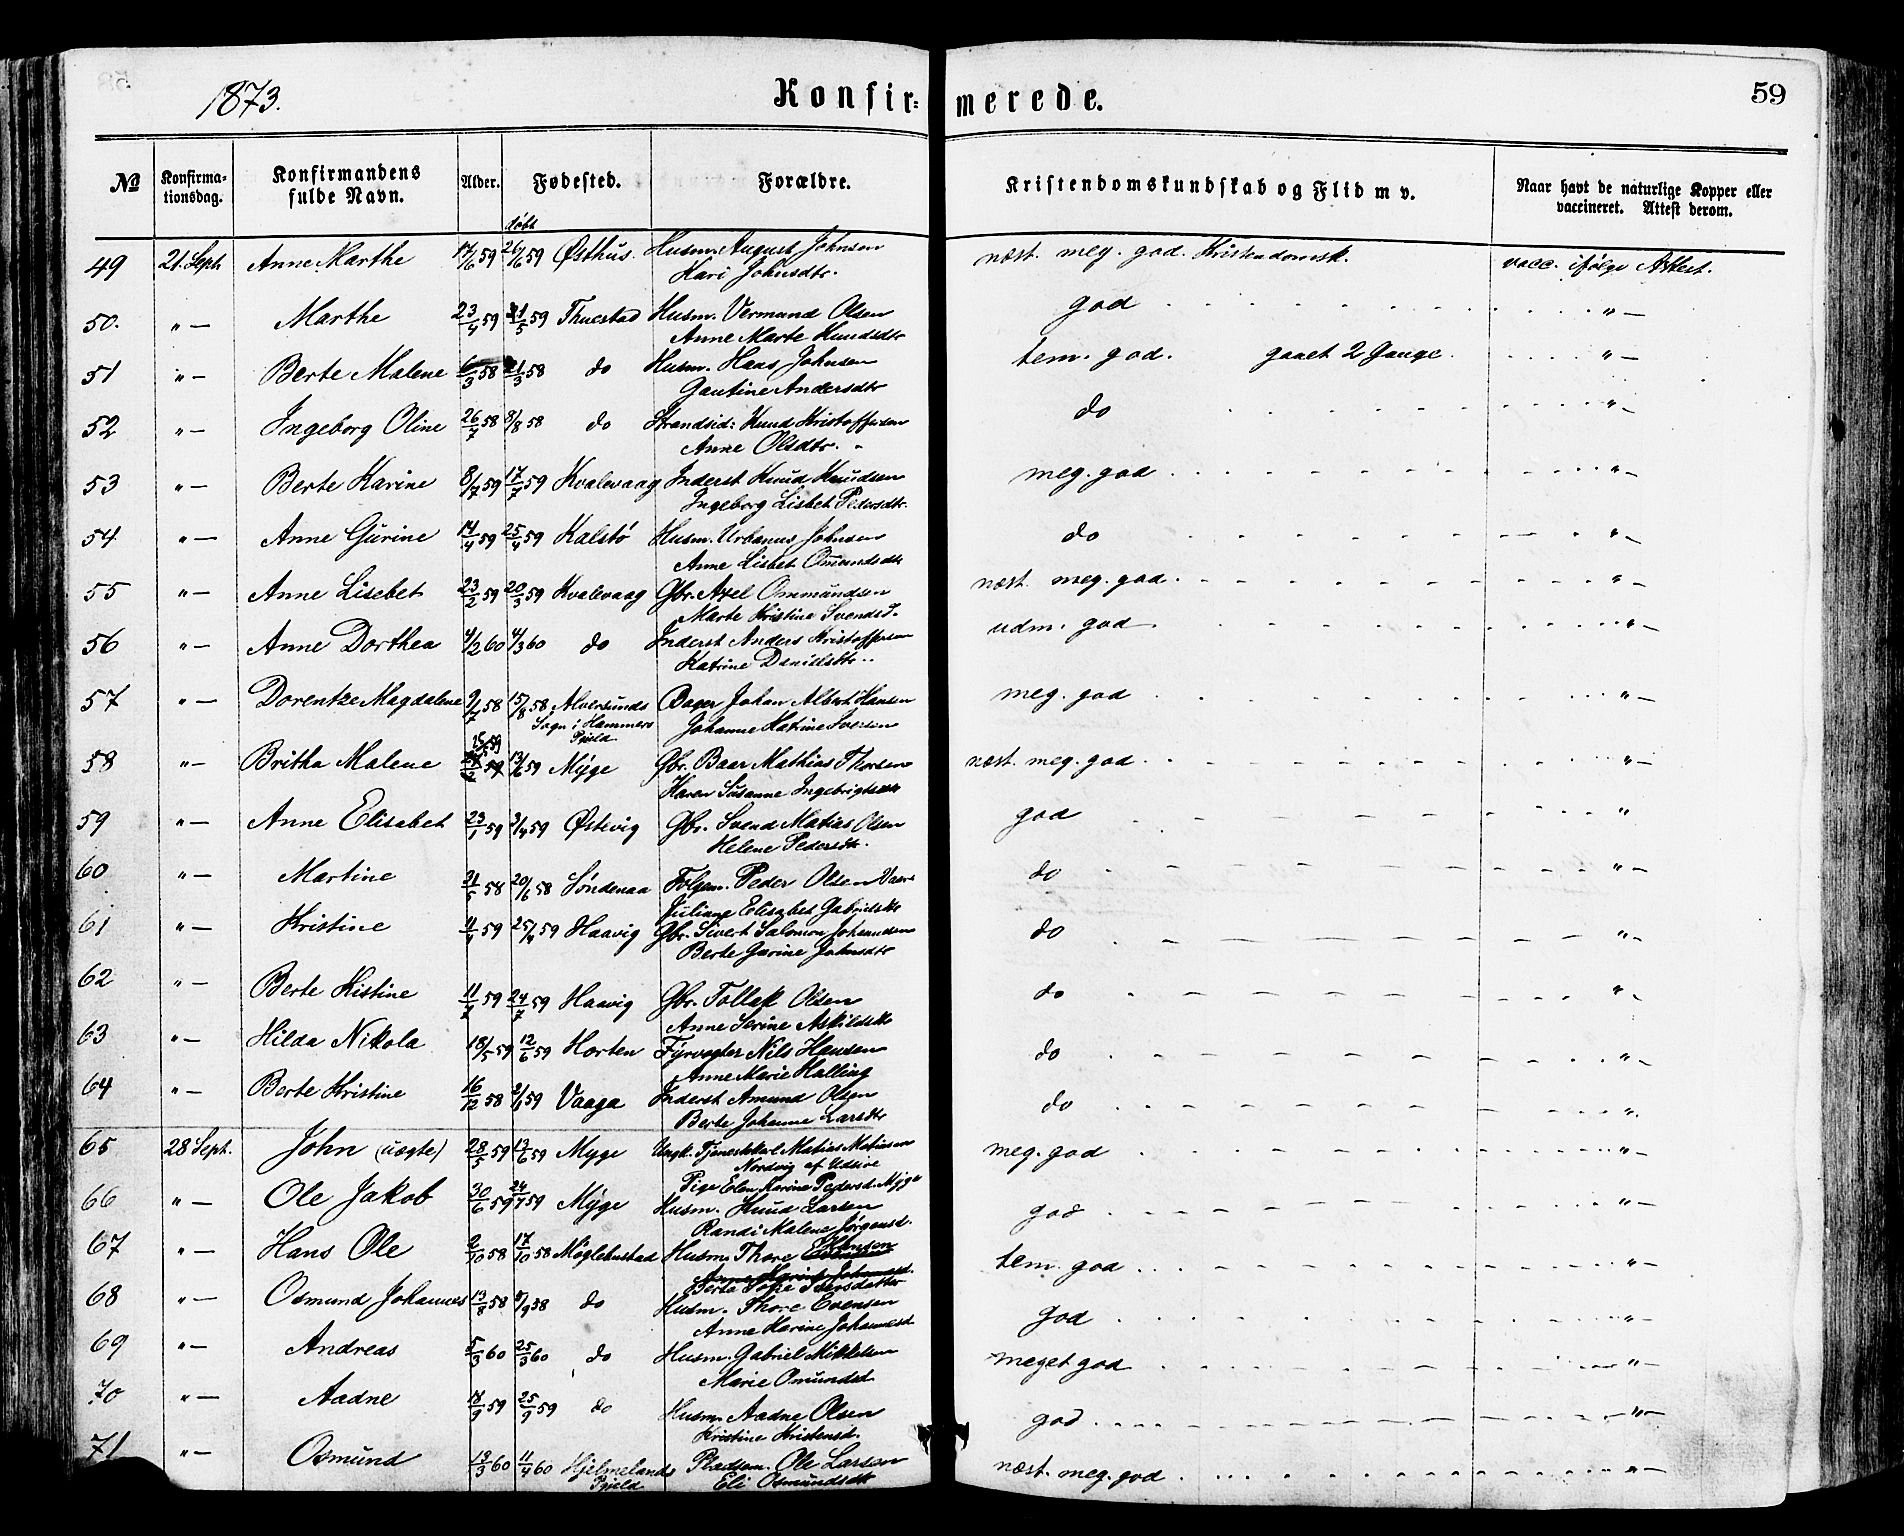 1873. Konfirmerede. 59
№ Konfirmationsdag. Konfirmandens fulde Navn. Alder. Fødested. Forældre. Kristendomskundskab og Flid m v. Naar havt de naturlige Kopper eller vaccineret. Attest derom.
døbt
49 21. Sept Anne Marthe 17/6 59 26/6 59 Østhus. Husm. August Johnsen næst. meg. god. Kristendomsk. vacc. ifølge Attest.
Kari Johnsdtr.
50. "— Marthe 23/4 59 /5 59 Thuestad Husm. Vermund Olsen god "—
Anne Marte Knudsdtr
51 "— Berte Malene 6/3 58 21/3 58 do Husm. Haas Johnsen tem. god. gaaet 2 Gange "—
Gautine Andersdtr
52 "— Ingeborg Oline 26/7 58 8/8 58 do Strandsid: Knud Kristoffersen do "—
Anne Olsdtr.
53 "— Berte Karine 8/7 59 17/7 59 Kvalevaag Inderst Knud Knudsen meg. god "—
Ingeborg Lisbet Pedersdtr.
54 "— Anne Gurine 14/4 59 25/4 59 Kalstø Husm. Urbanus Johnsen do "—
Anne Lisbet Omundsdtr
55 "— Anne Lisebet 23/2 59 20/3 59 Kvalevaag Gbr. Axel Ommundsen næst. meg. god. "—
Marte Kristine Svendsd.
56 "— Anne Dorthea 4/2 60 4/3 60 do Inderst Anders Kristoffersen udm. god "—
Katrine Danielsdtr
57 "— Dorentze Magdalene 9/7 58 15/8 58 Alversunds Bager Johan Albert Hansen meg. god "—
Sogn i Hammers Johanne Katrine Iversen
Pgield
58 "— Britha Malene 25/5 59 13/6 59 Myge Gbr. Baar Mathias Thorsen næst. meg. god "—
Karen Susanne Ingebrigtsdtr
59 "— Anne Elisabet 23/1 59 3/4 59 Østevig Gbr. Svend Matias Olsen god "
Helene Pedersdtr.
60 "— Martine 31/5 58 20/6 58 Søndenaa Folgem. Peder Olsen do "—
Juliane Elisabet Gabrielsdtr
61 "— Kristine 11/4 59 25/4 59 Haavig Gbr. Sivert Salomon Johannesen do "—
Berte Gurine Johnsdtr
62 "— Berte Kistine 11/7 59 24/7 59 Haavig Gbr. Tollak Olsen do "—
Anne Serine Askildsdtr
63 "— Hilda Nikola 18/5 59 12/6 59 Horten Fyrvogter Nils Hansen do "—
Anne Marie Halling
64 "— Berte Kristine 16/12 58 2/1 59 Vaaga Inderst Amund Olsen do "
Berte Johanne Larsdtr
65 28 Sept. John (uægte) 28/5 59 13/6 59 Myge Ungk. Tjenestekarl Matias Matiasen meg. god "—
Nordvig af Udsire
Pige Elen Karine Pedersd. Myge
66 "— Ole Jakob 30/6 59 24/7 59 Myge Husm. Knud Larsen god "—
Randi Malene Jørgensd.
67 "— Hans Ole 2/10 58 17/10 58 Møglebustad Husm. Thore Evensen tem. god "—
Anne Karine Johannesd.
Berta Sofie Iversdatter
68 "— Osmund Johannes 13/8 58 /9 58 do Husm. Thore Evensen god "—
Anne Karine Johannesd
69 "— Andreas 5/3 60 25/3 60 do Husm. Gabriel Mikkelsen meget god "—
Marie Omundsd
70 "— Aadne /9 59 25/9 59 do Husm. Aadne Olsen god "—
Kristine Kristensd.
71 "— Osmund 13/3 60 11/4 60 Hjelmelands Pladsm. Ole Larsen næst. meg. god "—
Pgield Eli Osmundsdtr